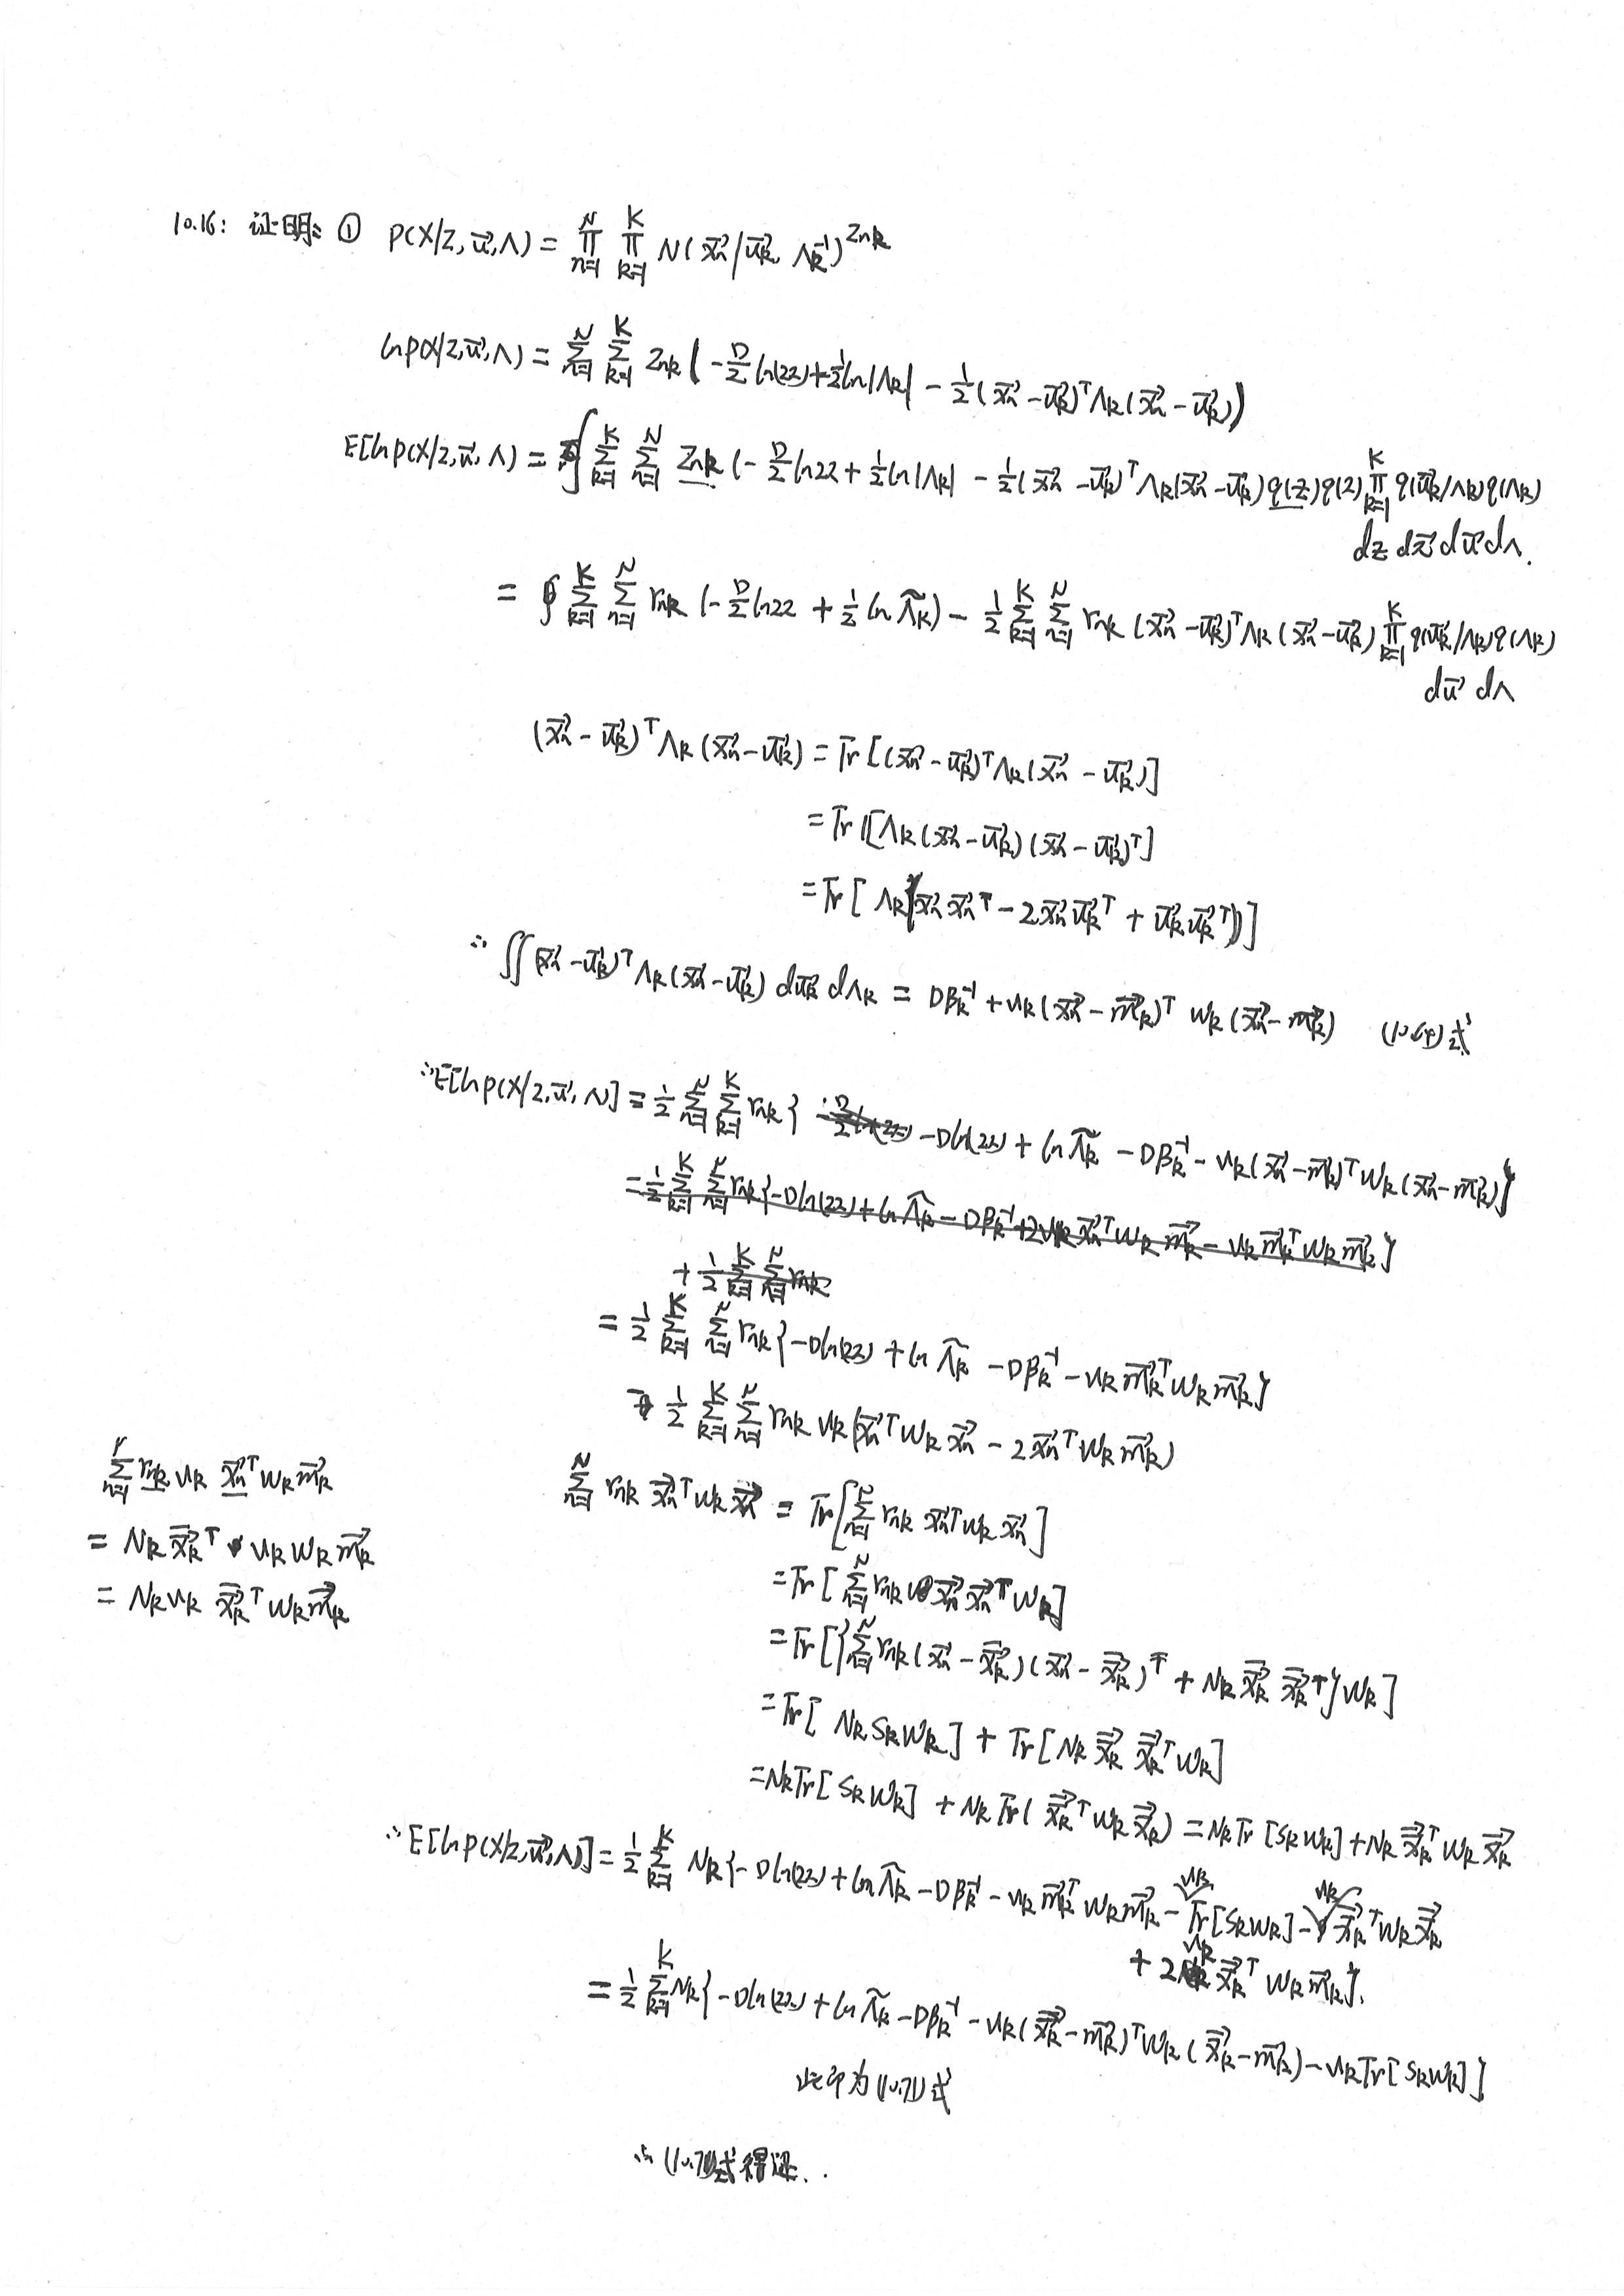 10.16: 证明: ① P(X/Z, u⃗, Λ) = ∏_{n=1}^{N} ∏_{k=1}^{K} N(x⃗n/u⃗k, Λk⁻¹)^{Znk}
ln p(X/Z, u⃗, Λ) = Σ_{n=1}^{N} Σ_{k=1}^{K} Znk (-D/2 ln(2π) + 1/2 ln|Λk| - 1/2 (x⃗n - u⃗k)ᵀ Λk (x⃗n - u⃗k))
E[ln p(X/Z, u⃗, Λ) = ∫ Σ_{k=1}^{K} Σ_{n=1}^{N} Znk (-D/2 ln2π + 1/2 ln|Λk| - 1/2 (x⃗n - u⃗k)ᵀ Λk (x⃗n - u⃗k) q(z) q(π) ∏_{k=1}^{K} q(u⃗k/Λk) q(Λk)
dz dπ⃗ du⃗ dΛ.
= ∫ Σ_{k=1}^{K} Σ_{n=1}^{N} rnk (-D/2 ln2π + 1/2 ln Λ̃k) - 1/2 Σ_{k=1}^{K} Σ_{n=1}^{N} rnk (x⃗n - u⃗k)ᵀ Λk (x⃗n - u⃗k) ∏_{k=1}^{K} q(u⃗k/Λk) q(Λk)
du⃗ dΛ
(x⃗n - u⃗k)ᵀ Λk (x⃗n - u⃗k) = Tr[(x⃗n - u⃗k)ᵀ Λk (x⃗n - u⃗k)]
= Tr[Λk (x⃗n - u⃗k)(x⃗n - u⃗k)ᵀ]
= Tr[Λk(x⃗n x⃗nᵀ - 2x⃗n u⃗kᵀ + u⃗k u⃗kᵀ)]
∴ ∬ (x⃗n - u⃗k)ᵀ Λk (x⃗n - u⃗k) du⃗k dΛk = Dβk⁻¹ + νk (x⃗n - m⃗k)ᵀ Wk (x⃗n - m⃗k) (10.64)式
∴ E[ln p(X/Z, u⃗, Λ] = 1/2 Σ_{n=1}^{N} Σ_{k=1}^{K} rnk { -D ln(2π) + ln Λ̃k - Dβk⁻¹ - νk (x⃗n - m⃗k)ᵀ Wk (x⃗n - m⃗k)}
= 1/2 Σ_{k=1}^{K} Σ_{n=1}^{N} rnk {-D ln(2π) + ln Λ̃k - Dβk⁻¹ + 2νk x⃗nᵀ Wk m⃗k - νk m⃗kᵀ Wk m⃗k}
+ 1/2 Σ_{k=1}^{K} Σ_{n=1}^{N} rnk
= 1/2 Σ_{k=1}^{K} Σ_{n=1}^{N} rnk {-D ln(2π) + ln Λ̃k - Dβk⁻¹ - νk m⃗kᵀ Wk m⃗k}
- 1/2 Σ_{k=1}^{K} Σ_{n=1}^{N} rnk νk (x⃗nᵀ Wk x⃗n - 2x⃗nᵀ Wk m⃗k)
Σ_{n=1}^{N} rnk νk x⃗nᵀ Wk m⃗k
= Nk x̄⃗kᵀ νk Wk m⃗k
= Nk νk x̄⃗kᵀ Wk m⃗k
Σ_{n=1}^{N} rnk x⃗nᵀ Wk x⃗n = Tr[Σ_{n=1}^{N} rnk x⃗nᵀ Wk x⃗n]
= Tr[Σ_{n=1}^{N} rnk x⃗n x⃗nᵀ Wk]
= Tr[{Σ_{n=1}^{N} rnk (x⃗n - x̄⃗k)(x⃗n - x̄⃗k)ᵀ + Nk x̄⃗k x̄⃗kᵀ} Wk]
= Tr[Nk Sk Wk] + Tr[Nk x̄⃗k x̄⃗kᵀ Wk]
= Nk Tr[Sk Wk] + Nk Tr(x̄⃗kᵀ Wk x̄⃗k) = Nk Tr[Sk Wk] + Nk x̄⃗kᵀ Wk x̄⃗k
∴ E[ln p(X/Z, u⃗, Λ)] = 1/2 Σ_{k=1}^{K} Nk {-D ln(2π) + ln Λ̃k - Dβk⁻¹ - νk m⃗kᵀ Wk m⃗k - νk Tr[Sk Wk] - νk x̄⃗kᵀ Wk x̄⃗k
+ 2νk x̄⃗kᵀ Wk m⃗k}.
= 1/2 Σ_{k=1}^{K} Nk {-D ln(2π) + ln Λ̃k - Dβk⁻¹ - νk (x̄⃗k - m⃗k)ᵀ Wk (x̄⃗k - m⃗k) - νk Tr[Sk Wk]}
此即为(10.71)式
∴ (10.71)式得证.